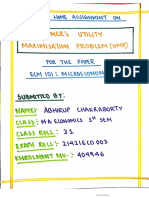 HOME ASSIGNMENT ON
MER'S UTILITY
MAXIMISATION PROBLEM (UMP)
FOR THE PAPER
ECM 101: MICROECONOMI
SUBMITTED BY:
NAME:- ABHIRUP CHAKRABORTY
CLASS:- M.A ECONOMICS 1ST SEM
CLASS ROLL: 31
EXAM ROLL: 21421ECO03
ENROLMENT NO:- 409946